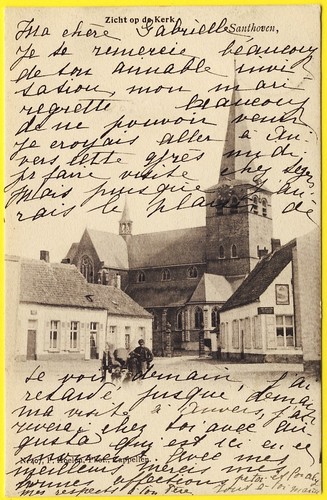 Zicht op de Kerk
Santhoven,
Ma chère Gabrielle
Je te remercie beaucoup
de ton aimable invi
tation, mon mari
regrette beaucoup
de ne pouvoir venir
Je croyais aller à An
vers cette après midi
pr faire visite chez
Mais puisque j'au
rais le plaisir de
te voir demain, j'ai
retardé jusque demain
ma visite à Anvers, j'ar
riverai chez toi avec Au
gusta qui est ici en ce
moment. Avec mes
meilleurs mercis mes
bonnes affections
mes respects à ton Père
Hoelen, Cappellen